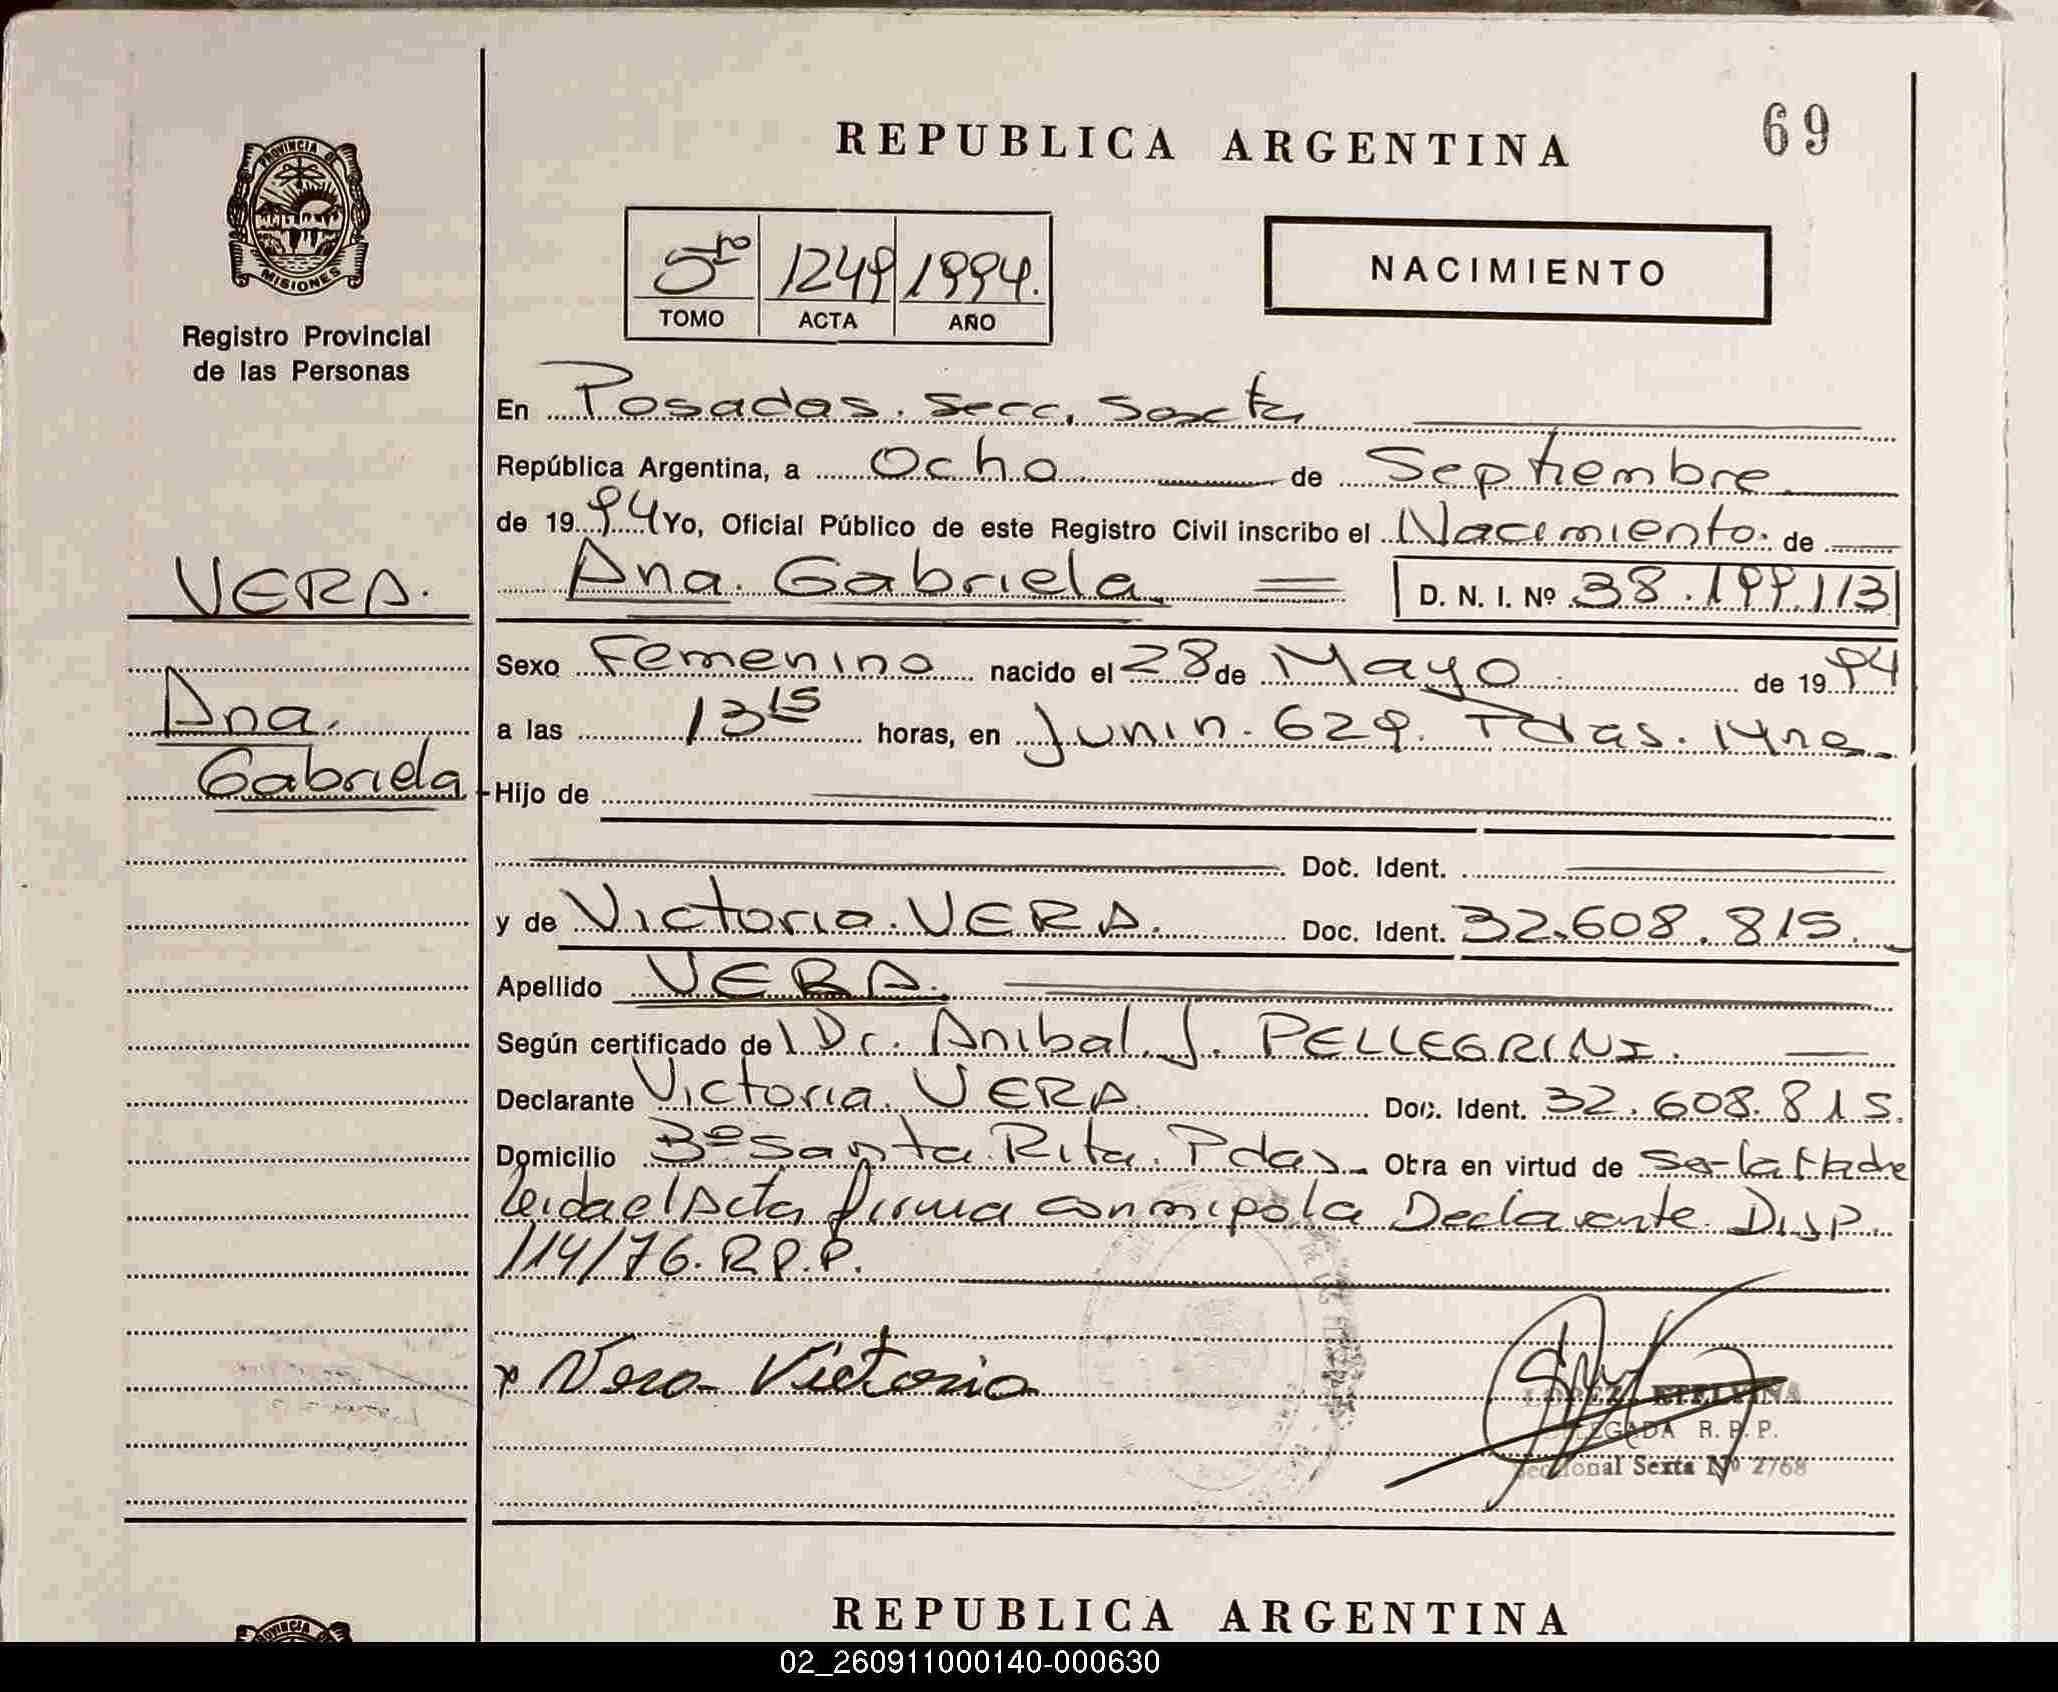 REPUBLICA ARGENTINA
69
PROVINCIA DE
MISIONES
Registro Provincial
de las Personas
5to 1249 1994.
TOMO ACTA AÑO
NACIMIENTO
En Posadas. Secc. Sexta
República Argentina, a Ocho de Septiembre
de 1994 Yo, Oficial Público de este Registro Civil inscribo el Nacimiento. de
VERA.
Ana. Gabriela. D. N. I. Nº 38.199.113
Sexo Femenino nacido el 28 de Mayo de 1994
Ana.
Gabriela
a las 13 15 horas, en Junin. 629. Pdas. Mnes.
Hijo de
Doc. Ident.
y de Victoria. VERA. Doc. Ident. 32.608.815.
Apellido VERA.
Según certificado de l Dr. Anibal. J. PELLEGRINI.
Declarante Victoria. VERA. Doc. Ident. 32.608.815.
Domicilio Bº Santa. Rita. Pdas Obra en virtud de Ser la Madre
Leida el Acta firma conmigo la Declarante. Disp.
114/76. R.P.P.
x Vera Victoria
LOPEZ ETELVINA
DELEGADA R. P. P.
Seccional Sexta Nº 2768
REPUBLICA ARGENTINA
PROVINCIA DE
02_260911000140-000630